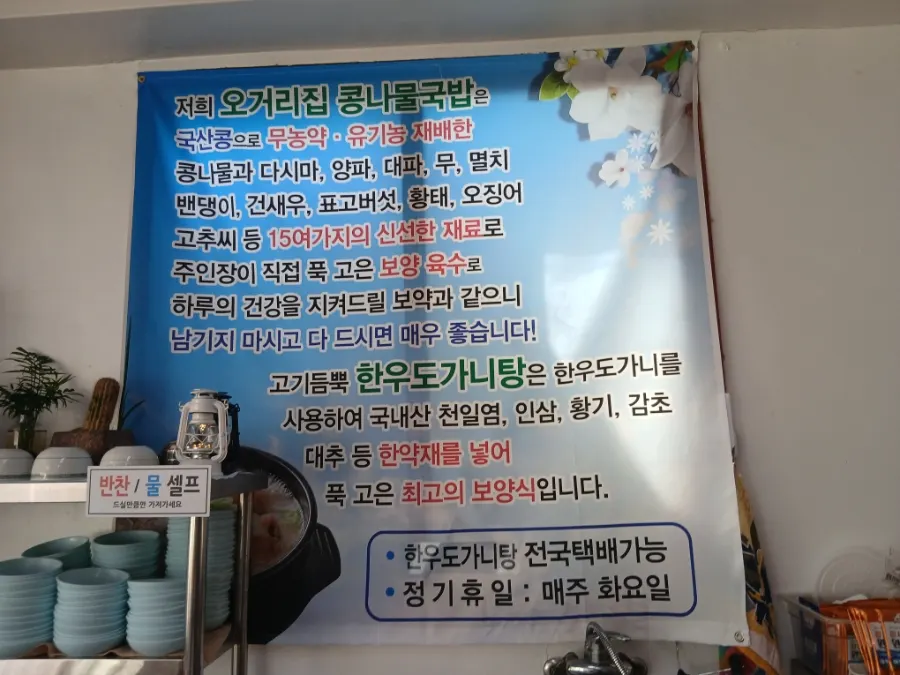 저희 오거리집 콩나물국밥은
국산콩으로 무농약 · 유기농 재배한
콩나물과 다시마, 양파, 대파, 무, 멸치
밴댕이, 건새우, 표고버섯, 황태, 오징어
고추씨 등 15여가지의 신선한 재료로
주인장이 직접 푹 고은 보양 육수로
하루의 건강을 지켜드릴 보약과 같으니
남기지 마시고 다 드시면 매우 좋습니다!
고기듬뿍 한우도가니탕은 한우도가니를
사용하여 국내산 천일염, 인삼, 황기, 감초
대추 등 한약재를 넣어
푹 고은 최고의 보양식입니다.
• 한우도가니탕 전국택배가능
• 정기휴일 : 매주 화요일
반찬 / 물 셀프
드실만큼만 가져가세요